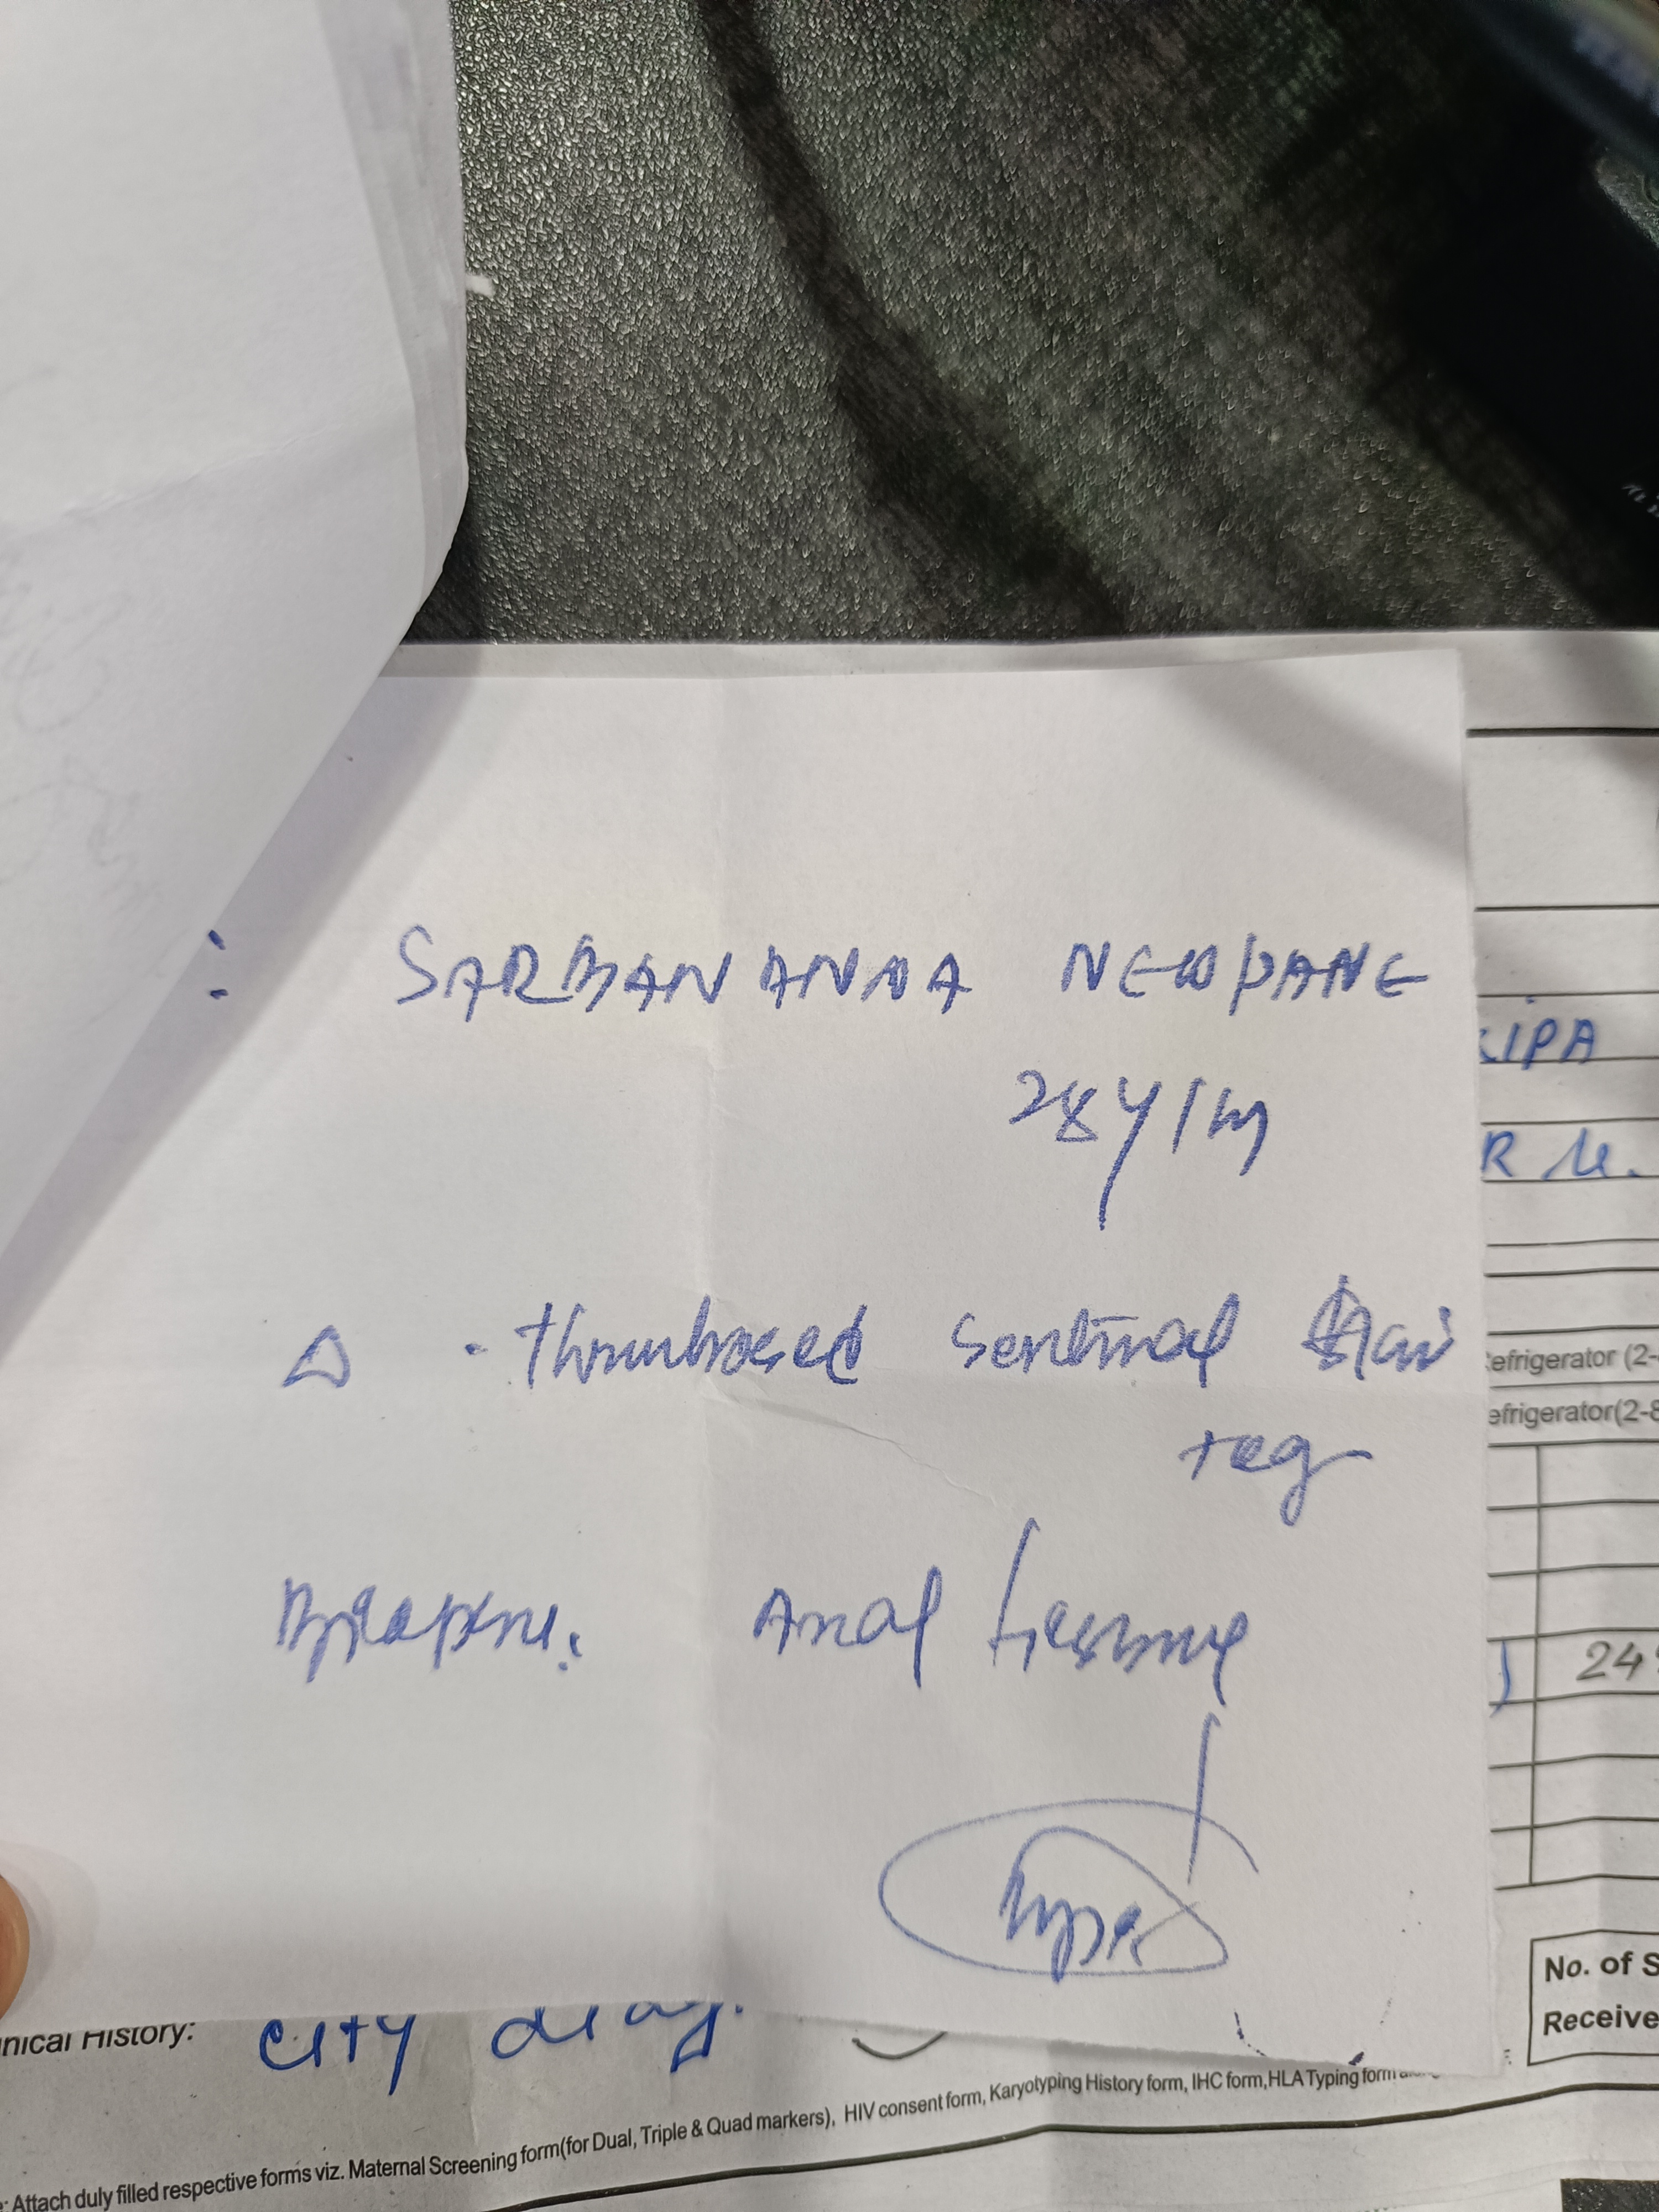 :
SARBANANDA NEWPANE
28Y/M
KIPA
R U.
Δ . thrombosed sentinal skin
tag
efrigerator (2-
efrigerator(2-8
Biopsy: Anal fissure
24
No. of S
Receive
nical History: city diag.
HIV consent form, Karyotyping History form, IHC form,HLA Typing form
: Attach duly filled respective forms viz. Maternal Screening form(for Dual, Triple & Quad markers),